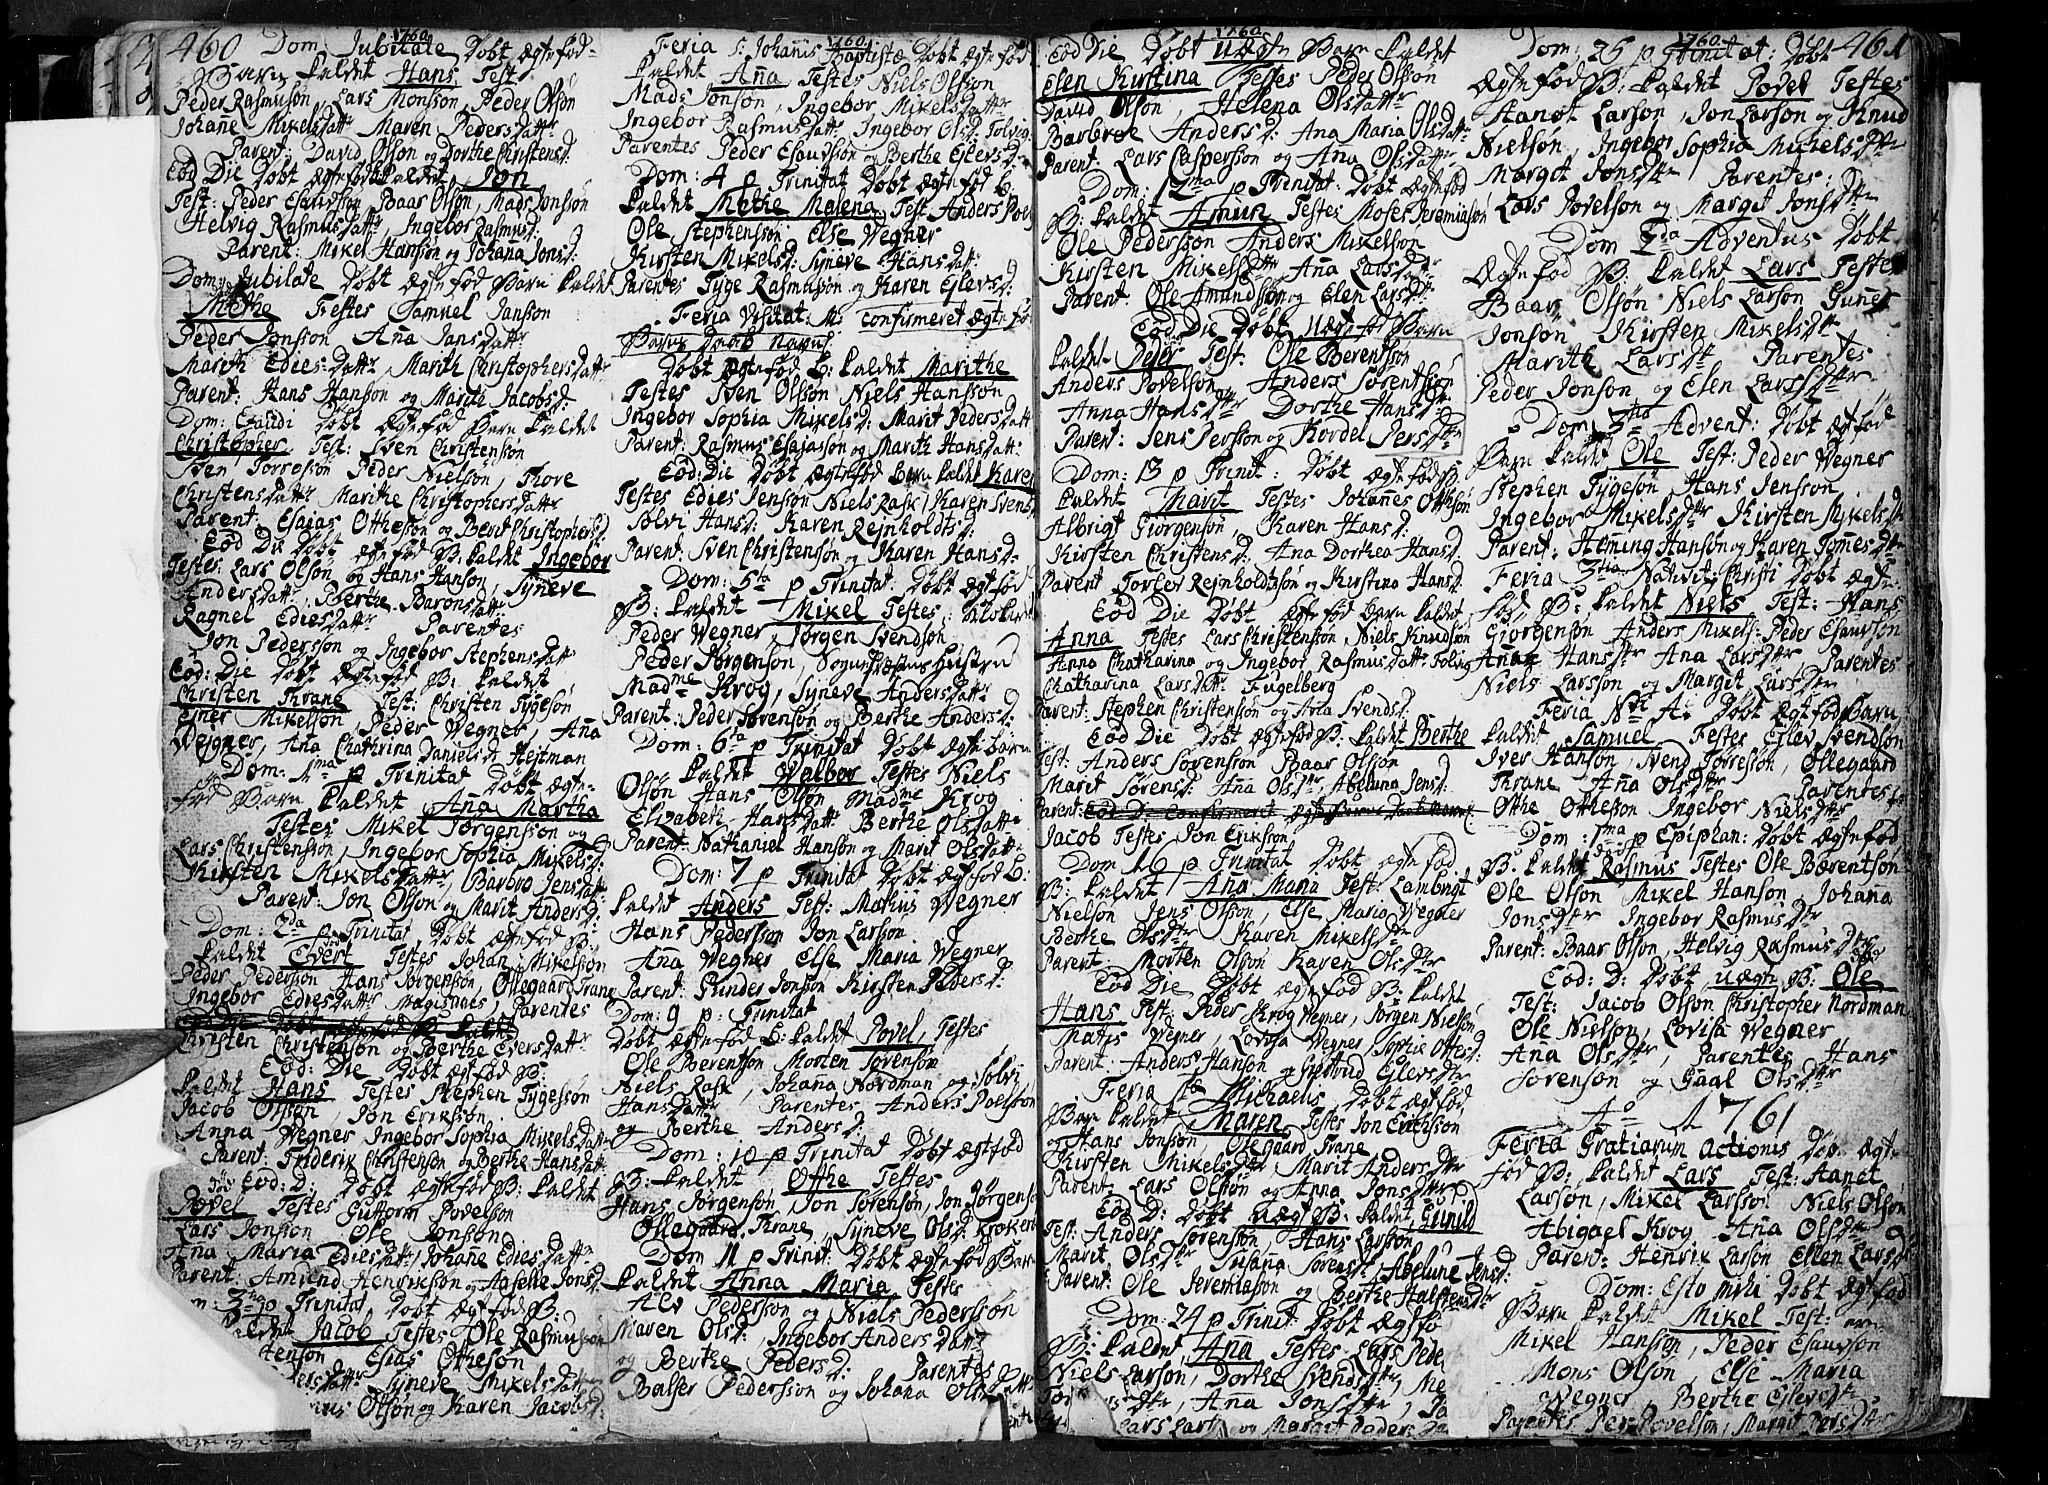 460
1760
Dom Jubilate Døbt ægte fød
Barn kaldet Hans Test
Peder Rasmusøn Lars Monsson, Peder Olsøn
Johane Mikelsdattr Maren Pedersdattr
Parent: David Olsøn og Dorthe Christensd:
Eod Die Døbt ægte fød kaldet Jon
Test: Peder Esaudsson Baar Olson, Mads Jonsson
Helvig Rasmusdattr, Ingebor Rasmusd:
Parent: Mikel Hanson og Johana Jonsd:
Dom: Jubilate Døbt ægte fød Barn kaldet
Methe Testes Samuel Janson
Peder Jonsson Ana Jansdattr
Marith Ediesdattr, Marith Christophersdattr
Parent: Hans Hanson og Marith Jacobsd:
Dom: Exaudi Døbt ægte fød Barn kaldet
Christopher Test: Sven Christensøn
Sven Torresøn Peder Nielsøn, Thore
Christensdattr Marithe Christophersdattr
Parent: Esaias Otheson og Berit Christophersd:
Eod Die Døbt ægte fød B: kaldet Ingebor
Testes Lars Olson og Hans Hanson, Syneve
Andersdattr, Berthe Baronsdattr
Ragnel Ediesdattr Parentes
Jon Pedersson og Ingebor Stephensdattr
Eod: Die Døbt ægte fød B: kaldet
Christen Thrane Test: Christen Tygesøn
Ejner Mikelson, Peder Wegner, Ana
Wegner, Ana Chathrina Danielsd Hejtman
Dom: 1ma p Trinitat Døbt ægte
fød Barn kaldet Ana Martha
Testes Mikel Jørgensson og
Lars Christensson, Ingebor Sophia Mikelsd:
Kirsten Mikelsdattr, Barbro Jensdattr
Parent: Jon Olson og Marit Andersd:
Dom: 2da p Trinitat Døbt ægte fød B:
kaldet Evert Testes Johan Mikelsson
Peder Pederson Hans Jørgensøn, Ollegaard Trane
Ingebor Ediesdattr Parentes
Christen Christenson og Berthe Eversdattr
Eod: Die Døbt ægt fød B:
kaldet Hans Testes Stephen Tygessøn
Jacob Olsson, Jon Erikson
Anna Wegner Ingebor Sophia Mikelsdattr
Parent: Friderik Christenson og Berthe Hansdattr
Eod: D: Døbt ægte fød B: kaldet
Povel Testes Guttorm Povelson
Lars Jonsson Ole Jonson
Ana Maria Ediesdattr, Johane Ediesdattr
Parent: Amund Henrikson og Apselle Jonsd:
3tia p Trinitat Døbt ægt fød B:
kaldet Jacob Testes Ole Rasmusøn
Esias Otheson
Syneve Mikelsdattr
Olsøn og Karen Jacobsd:
1760
Feria S: Johanis Baptistæ Døbt ægte fød
kaldet Ana Testes Niels Olsson
Mads Jonsøn, Ingebor Mikelsdattr
Ingebor Rasmusdattr, Ingebor Olsd: Tolvig
Parentes Peder Esaudsson og Berthe Ejlersd:
Dom: 4 p Trinitat Døbt ægte fød B:
kaldet Methe Malena Test Anders
Ole Stephensson Else Wegner
Kirsten Mikelsd: Syneve Hansdattr
Parentes Tyge Rasmusøn og Karen Ejlersd:
Feria Visitat: M: confirmeret ægte fø
Barns Daab Navnl
Døbt ægte fød B: kaldet Marithe
Testes Sven Olsson Niels Hansson
Ingebor Sophia Mikelsd: Marit Pedersdattr
Parent: Rasmus Esajasson og Marith Hansdattr
Eod: Die Døbt ægte fød Barn kaldet Karen
Testes Edies Jensson Niels Rask, Karen Svens
Solvi Hansd: Karen Rejnholdtsd:
Parent: Sven Christensøn og Karen Hansd:
Dom: 5ta p Trinitat: Døbt ægte fød
B: kaldet Mikel Testes:
Peder Wegner, Jørgen Svendsøn
Peder Jørgenson,
Madme Krog, Syneve Andersdattr
Parent: Peder Sørensøn og Berthe Andersd:
Dom: 6ta p Trinitat Døbt ægte barn
kaldet Walbor Testes Niels
Olsøn Hans Olsøn Madme Krog
Elizabeth Hansdattr Berthe Olsdattr
Parent: Nathaniel Hanson og Marit Olsdattr
Dom: 7 p Trinitat Døbt ægt fød B:
kaldet Anders Test: Mathis Wegner
Hans Pedersson Jon Larson
Ana Wegner Else Maria Wegner
Parent: Gunder Jonson Kirsten Pedersd:
Dom: 9 p: Trinitat
Døbt ægte fød B: kaldet Povel, Testes
Ole Berentson Morten Sørenson
Niels Rask, Johana Nordman og Solvi
Hansdattr Parentes Anders Poelsson
og Berthe Andersd:
Dom: 10 p Trinitat Døbt ægt fød
B: kaldet Othe Testes
Hans Jørgensøn, Jon Sørensøn, Jon Jørgens
Ollegaard Thrane, Syneve Olsd:
Dom 11 p Trinit: Døbt ægte fød Barn
kaldet Anna Maria Testes
Alv Pedersson og Niels Pedersson
Maren Olsd: Ingebor Andersdattr
og Berthe Pedersd: Parentes
Balser Pedersson og Johana Olsdattr
1760
Eod Die Døbt uægte Barn kaldet
Elen Kirstina Testes Peder Olsson
David Olson, Helena Olsdattr
Barbroe Andersd: Ana Maria Olsdattr
Parent: Lars Caspersson og Ana Olsdattr
Dom: 12ma p Trinitat: Døbt ægte fød
B: kaldet Amun Testes Moses Jeremiasøn
Ole Pedersson Anders Mikelson
Kirsten Mikelsdttr Ana Larsdattr
Parent: Ole Amundsøn og Elen Larsdttr
Eod Die Døbt uægt fød Barn
kaldet Peder Test: Ole Berentsson
Anders Povelson, Anders Sørentson
Anna Hansdttr Dorthe Hansdttr
Parent: Jens Persson og Kordel Persdttr
Dom: 13 p Trinit: Døbt ægte fød B:
kaldet Marit Testes Johanes Ottesøn
Albrigt Giorgensøn, Karen Hansd:
Kirsten Christensd: Ana Dorthea Hansd:
Parent Torlev Rejnholdtsøn og Kirstina Hansd:
Eod Die Døbt ægte fød Barn kaldet
Anna Testes Lars Christensøn, Niels Knudsøn
Anna Chatharina og Ingebor Rasmusdattr Tolvig
Chatharina Larsdattr Fugelberg
Parent: Stephen Christensøn og Ana Svendsd:
Eod Die Døbt ægte fød B: kaldet Berthe
Test: Anders Sørensson Baar Olson
Marit Sørensd: Ana Olsdttr, Abeluna Jensd:
Parent: Eod D: confirmeret ægte Barns Daab
Jacob Testes Jon Erikson
Dom 16 p Trinitat Døbt ægte fød
B: kaldet Ana Maria Test: Lambrigt
Nielson Jens Olson, Else Maria Wegner
Berthe Olsdttr Karen Mikelsdttr
Parent: Morten Olson Karen Olsdttr
Eod Die Døbt ægte fød B: kaldet
Hans Test: Peder Krog Wegner, Jørgen Nielsøn
Mathis Wegner, Lovisa Wegner, Sophie Ottesd:
Parent: Anders Hanson og Gjertrud Ejlersdttr
Feria Sti Michaelis, Døbt ægt fød,
Barn kaldet Maren Testes Jon Erichsson
og Hans Jonson Olegaard Trane
Kirsten Mikelsdttr Marit Andersdttr
Parent: Lars Olsson og Anna Jonsdttr
Eod D: Døbt uægt B: kaldet Gunild
Test: Anders Sørenson, Hans Larson
Marit Olsdttr Susana Sørensdttr, Abelune Jensd:
Parent: Ole Jeremiason og Berthe Halstensdttr
Dom: 24 p Trinit: Døbt ægt fø
B: kaldet, Ana Testes Lars Peder
Niels Larson, Dorthe Svendsdttr, Me
dttr, Ana Jonsdttr,
Lars Lars og Margit Peders
461
1760
Dom: 25 p Trinitat: Døbt
ægte fød B: kaldet Povel Testes
Hanot Larson, Jon Larson og Knud
Nielsøn, Ingebor Sophia Mickelsdttr
Margit Jonsdttr Parentes:
Lars Povelson og Margit Jonsdttr
Dom 2da Adventus Døbt
ægte fød B: kaldet Lars Testes
Baar Olsøn Niels Larson Guner
Jonson Kirsten Mikelsdttr
Marith Larsdttr Parentes
Peder Jonson og Elen Larsdttr
Dom: 3tia Advent: Døbt ægt fød
Barn kaldet Ole Test: Peder Wegner
Stephen Tygesøn, Hans Jensson
Ingebor Mikelsdttr Kirsten Mikelsdttr
Parent: Heming Hanson og Karen Tomesdttr
Feria 3tia Nativit: Christi Døbt ægte
fød, B: kaldet Niels Test: Hans
Gjorgensøn Anders Mikels: Peder Esaudson
Ana Hansdttr Ana Larsdttr, Parentes
Niels Larsson og Margit Larsdttr
Feria N: A: Døbt ægt fød Barn
kaldet Samuel Testes Ejlev Svendson
Iver Hanson, Svend Torresson, Ollegaard
Thrane Ana Olsdttr Parentes
Othe Otheson Ingebor Nielsdttr
Dom: 1ma p Epiphan: Døbt ægte fød
B: kaldet Rasmus Testes Ole Berentson
Ole Olson Mikel Hanson, Johana
Jonsdttr Ingebor Rasmusdttr
Parent: Baar Olson, Helvig Rasmusdttr
Eod: D: Døbt uægte B: Ole
Test: Jacob Olson Christopher Nordman
Ole Nielson, Lovisa Wegner
Ana Olsdttr, Parentes Hans
Sorenson og Gaal Olsdttr
Ao 1761
Feria Gratiarum actionis Døbt ægte
fød B: kaldet Lars Test: Hanet
Larson, Mikel Larsson Niels Olson
Abigael Krog Ana Olsdttr
Parent: Henrik Larson Ellen Larsd
Dom: Esto mihi Døbt ægt fød
Barn kaldet Mikel Test:
Mikel Hanson, Peder Esaudson
Mons Olson, Else Maria
Wegner, Berthe Eslersdtr
Parentes Per Povelson, Margit Persdttr